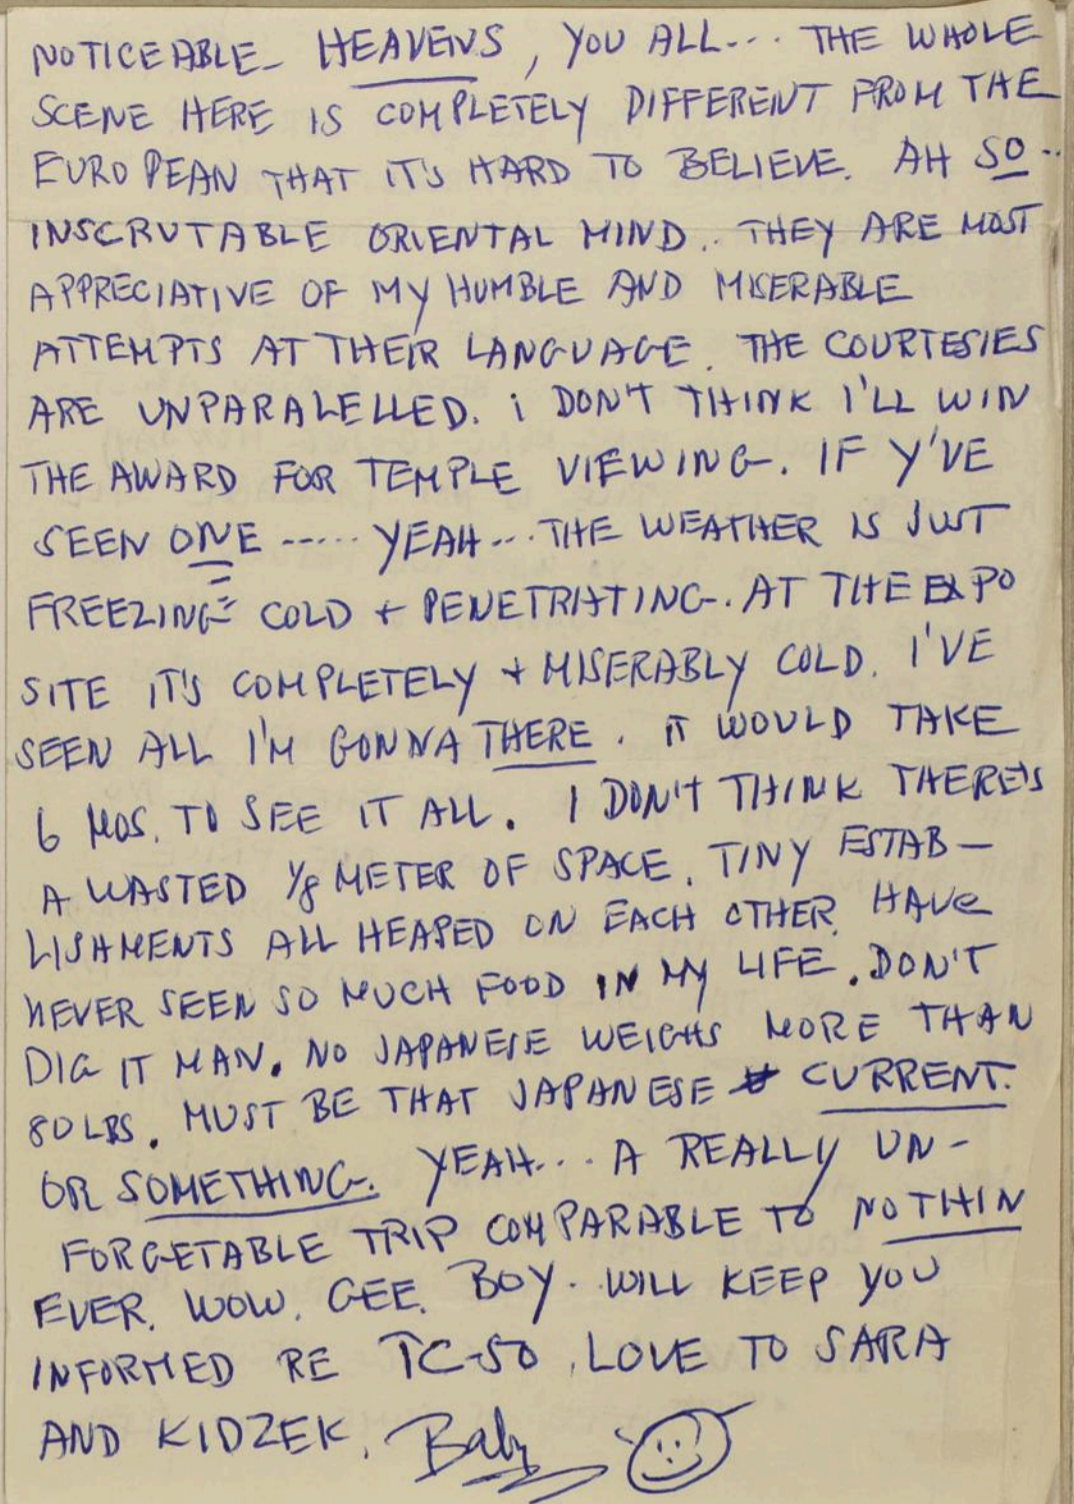 NOTICEABLE- HEAVENS, YOU ALL... THE WHOLE
SCENE HERE IS COMPLETELY DIFFERENT FROM THE
EUROPEAN THAT IT'S HARD TO BELIEVE. AH SO..
INSCRUTABLE ORIENTAL MIND.. THEY ARE MOST
APPRECIATIVE OF MY HUMBLE AND MISERABLE
ATTEMPTS AT THEIR LANGUAGE. THE COURTESIES
ARE UNPARALELLED. i DON'T THINK I'LL WIN
THE AWARD FOR TEMPLE VIEWING. IF Y'VE
SEEN ONE ----.. YEAH... THE WEATHER IS JUST
FREEZING COLD + PENETRATING. AT THE EXPO
SITE IT'S COMPLETELY + MISERABLY COLD. I'VE
SEEN ALL I'M GONNA THERE. IT WOULD TAKE
6 MOS. TO SEE IT ALL. I DON'T THINK THERE'S
A WASTED 1/8 METER OF SPACE. TINY ESTAB-
LISHMENTS ALL HEAPED ON EACH OTHER. HAVE
NEVER SEEN SO MUCH FOOD IN MY LIFE. DON'T
DIG IT MAN. NO JAPANESE WEIGHS MORE THAN
80 LBS. MUST BE THAT JAPANESE CURRENT.
OR SOMETHING. YEAH... A REALLY UN-
FORGETABLE TRIP COMPARABLE TO NOTHIN
EVER. WOW. GEE. BOY. WILL KEEP YOU
INFORMED RE TC-50. LOVE TO SARA
AND KIDZEK. Baby